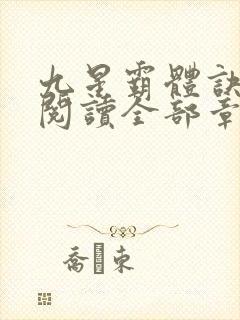 九星霸體訣
閱讀全部章
喬 東